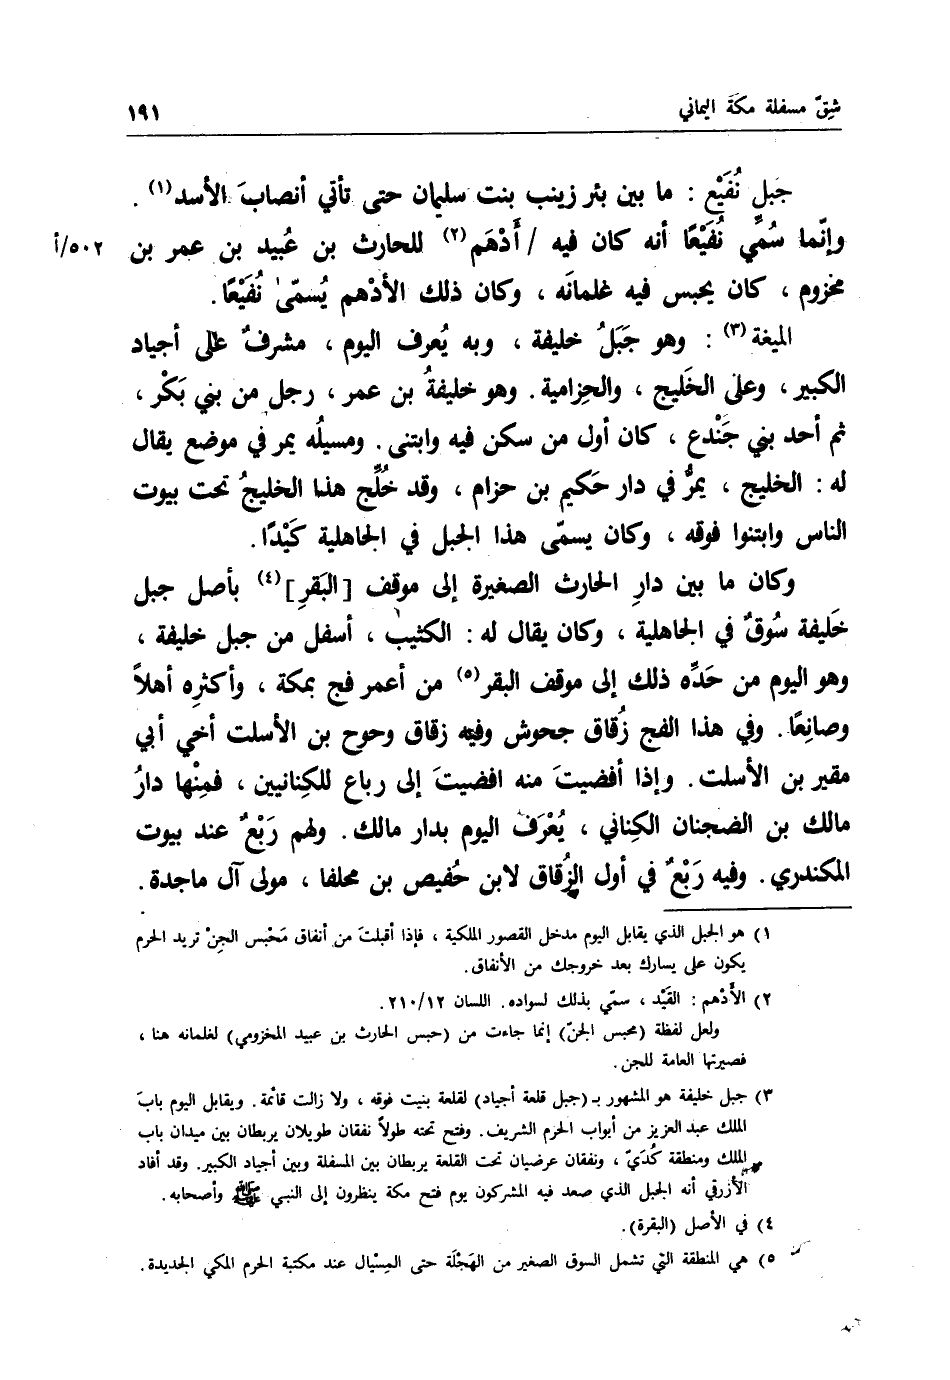 شِقّ مسفلة مكَةَ اليماني ١٩١
جَبل نُفَيْع : ما بين بئر زينب بنت سليمان حتى تأتي أنصابَ الأسد(١) .
وإنّما سُمِّي نُفَيْعًا أنه كان فيه / أَدْهَم(٢) للحارث بن عُبيد بن عمر بن ٥٠٢/أ
مخزوم ، كان يحبس فيه غلمانَه ، وكان ذلك الأدْهم يُسمّىٰ نُفَيْعًا.
الميغة(٣) : وهو جَبَلُ خليفة ، وبه يُعرف اليوم ، مشرفٌ على أجياد
الكبير ، وعلى الخَليج ، والحِزامية. وهو خليفةُ بن عمر ، رجل من بني بَكْر ،
ثم أحد بني جَنْدع ، كان أول من سكن فيه وابتنى. ومسيلُه يمر في موضع يقال
له : الخليج ، يمرُّ في دار حَكيم بن حزام ، وقد خُلِّج هذا الخليجُ تحت بيوت
الناس وابتنوا فوقه ، وكان يسمّى هذا الجبل في الجاهلية كَيْدًا.
وكان ما بين دارِ الحارث الصغيرة إلى موقف [البَقرِ](٤) بأصل جبل
خَليفة سُوقٌ في الجاهلية ، وكان يقال له : الكثيب ، أسفل من جبل خليفة ،
وهو اليوم من حَدِّه ذلك إلى موقف البقر(٥) من أعمر فج بمكة ، وأكثرِه أهلاً
وصانِعًا. وفي هذا الفج زُقاق جحوش وفيه زقاق وحوح بن الأسلت أخي أبي
مقير بن الأسلت. وإذا أفضيتَ منه افضيتَ إلى رباع للكِنانيين ، فمِنْها دارُ
مالك بن الضجنان الكِناني ، يُعْرَف اليوم بدار مالك. ولهم رَبْعٌ عند بيوت
المكندري. وفيه رَبْعٌ في أول الزُقاق لابن حُفيص بن محلفا ، مولى آل ماجدة.
١) هو الجبل الذي يقابل اليوم مدخل القصور الملكية ، فإذا أقبلتَ من أنفاق مَحْبس الجِنْ تريد الحرم
يكون على يسارك بعد خروجك من الأنفاق.
٢) الأَدْهم : القَيْد ، سمّي بذلك لسواده. اللسان ٢١٠/١٢.
ولعل لفظة (محبس الجنّ) إنما جاءت من (حبس الحارث بن عبيد المخزومي) لغلمانه هنا ،
فصيرتها العامة للجن.
٣) جبل خليفة هو المشهور بـ (جبل قلعة أجياد) لقلعة بنيت فوقه ، ولا زالت قائمة. ويقابل اليوم بابَ
الملك عبد العزيز من أبواب الحرم الشريف. وفتح تحته طولاً نفقان طويلان يربطان بين ميدان باب
الملك ومنطقة كُدَيّ ، ونفقان عرضيان تحت القلعة يربطان بين المسفلة وبين أجياد الكبير. وقد أفاد
الأزرقي أنه الجبل الذي صعد فيه المشركون يوم فتح مكة ينظرون إلى النبي ﷺ وأصحابه.
٤) في الأصل (البقرة).
٥) هي المنطقة التي تشمل السوق الصغير من الهَجْلَة حتى المِسْيال عند مكتبة الحرم المكي الجديدة.